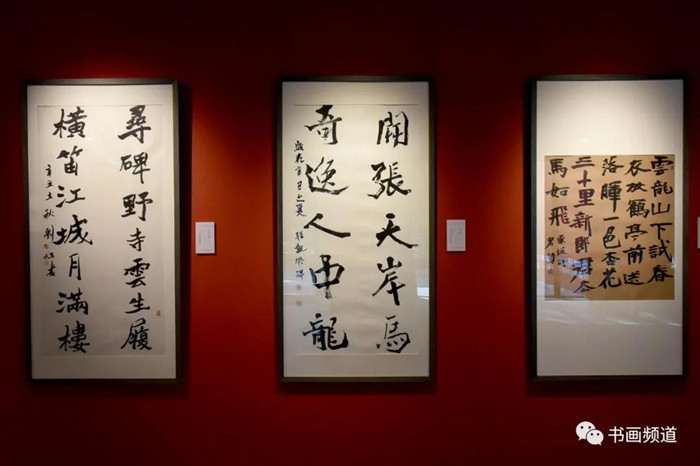 尋碑野寺雲生履
橫笛江城月滿樓
辛丑之秋劉書
開張天岸馬
奇逸人中龍
雲龍山下試春
衣放鶴亭前送
落暉一色杏花
三十里新郎君去
馬如飛
東坡詩
书画频道